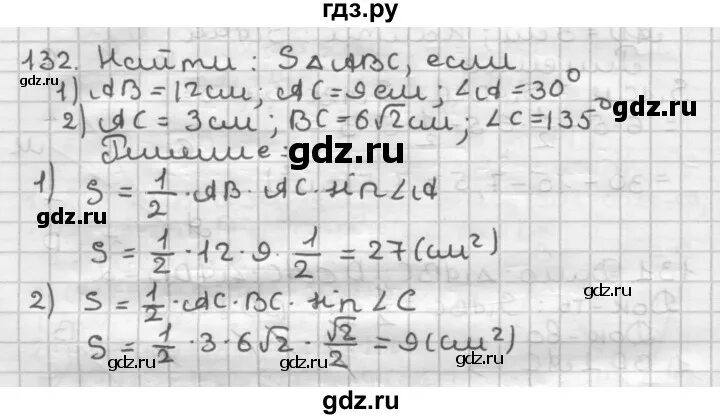 гдз.ру
132. Найти: S△ABC, если
1) AB = 12 см; AC = 9 см; ∠A = 30°
2) AC = 3 см; BC = 6√2 см; ∠C = 135°
Решение:
1) S = 1/2 · AB · AC · sin ∠A
S = 1/2 · 12 · 9 · 1/2 = 27 (см²)
2) S = 1/2 · AC · BC · sin ∠C
S = 1/2 · 3 · 6√2 · √2/2 = 9 (см²)
gdz.ru
gdz.ru
gdz.ru
gdz.ru
gdz.ru
gdz.ru
gdz.ru
gdz.ru
gdz.ru